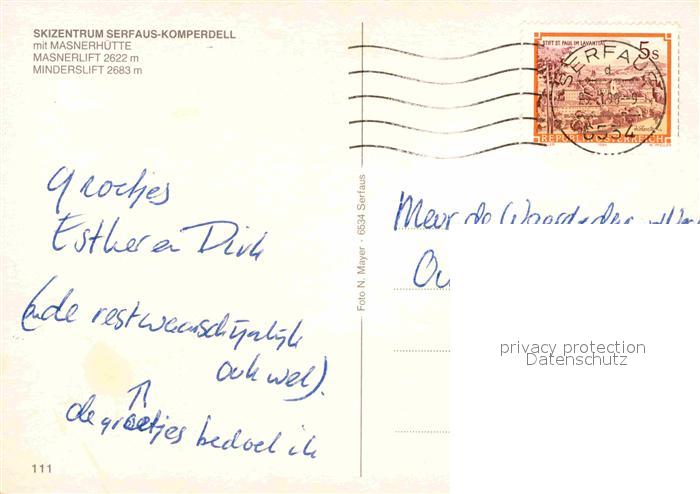 SKIZENTRUM SERFAUS-KOMPERDELL
mit MASNERHÜTTE
MASNERLIFT 2622 m
MINDERSLIFT 2683 m
STIFT ST. PAUL IM LAVANTTAL
5 s
REPUBLIK ÖSTERREICH
SERFAUS
6534
groetjes
Esther en Dirk
(en de rest waarschijnlijk
ook wel).
↑
de groetjes bedoel ik
111
Foto N. Mayer · 6534 Serfaus
Mevr de
privacy protection
Datenschutz